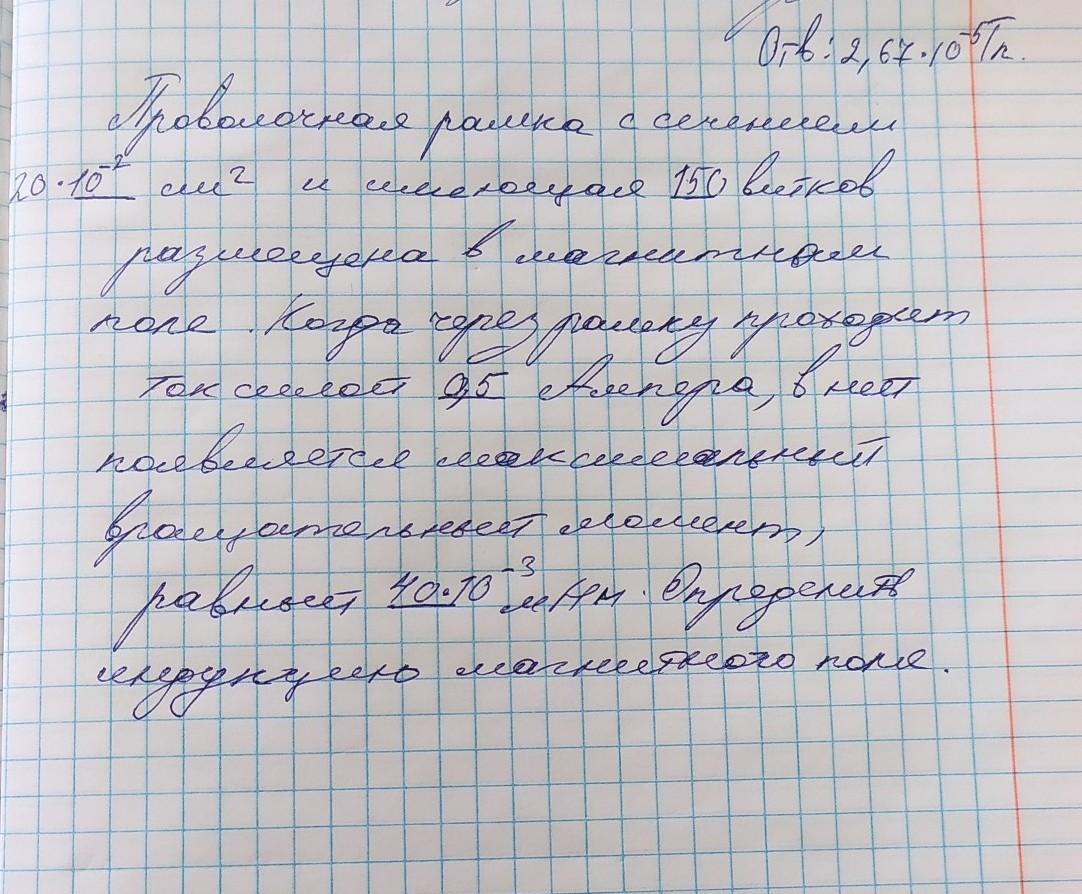 Отв: 2,67·10⁻⁵Тл.
Проволочная рамка с сечением
20·10⁻² см² и имеющая 150 витков
размещена в магнитном
поле. Когда через рамку проходит
ток силой 0,5 Ампера, в ней
появляется максимальный
вращательный момент,
равный 40·10⁻³ мНм. Определить
индукцию магнитного поля.